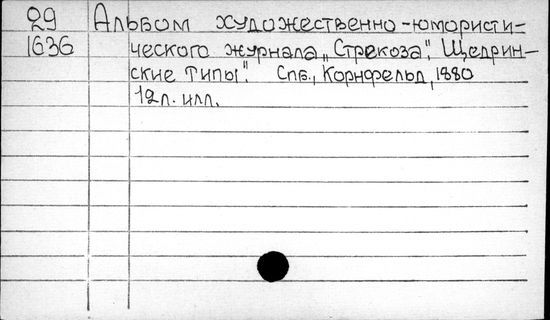 29 Альбом художественно-юмористи-
1636 ческого журнала „Стрекоза". Щедрин-
ские типы". Спб., Корнфельд, 1880
12л. илл.